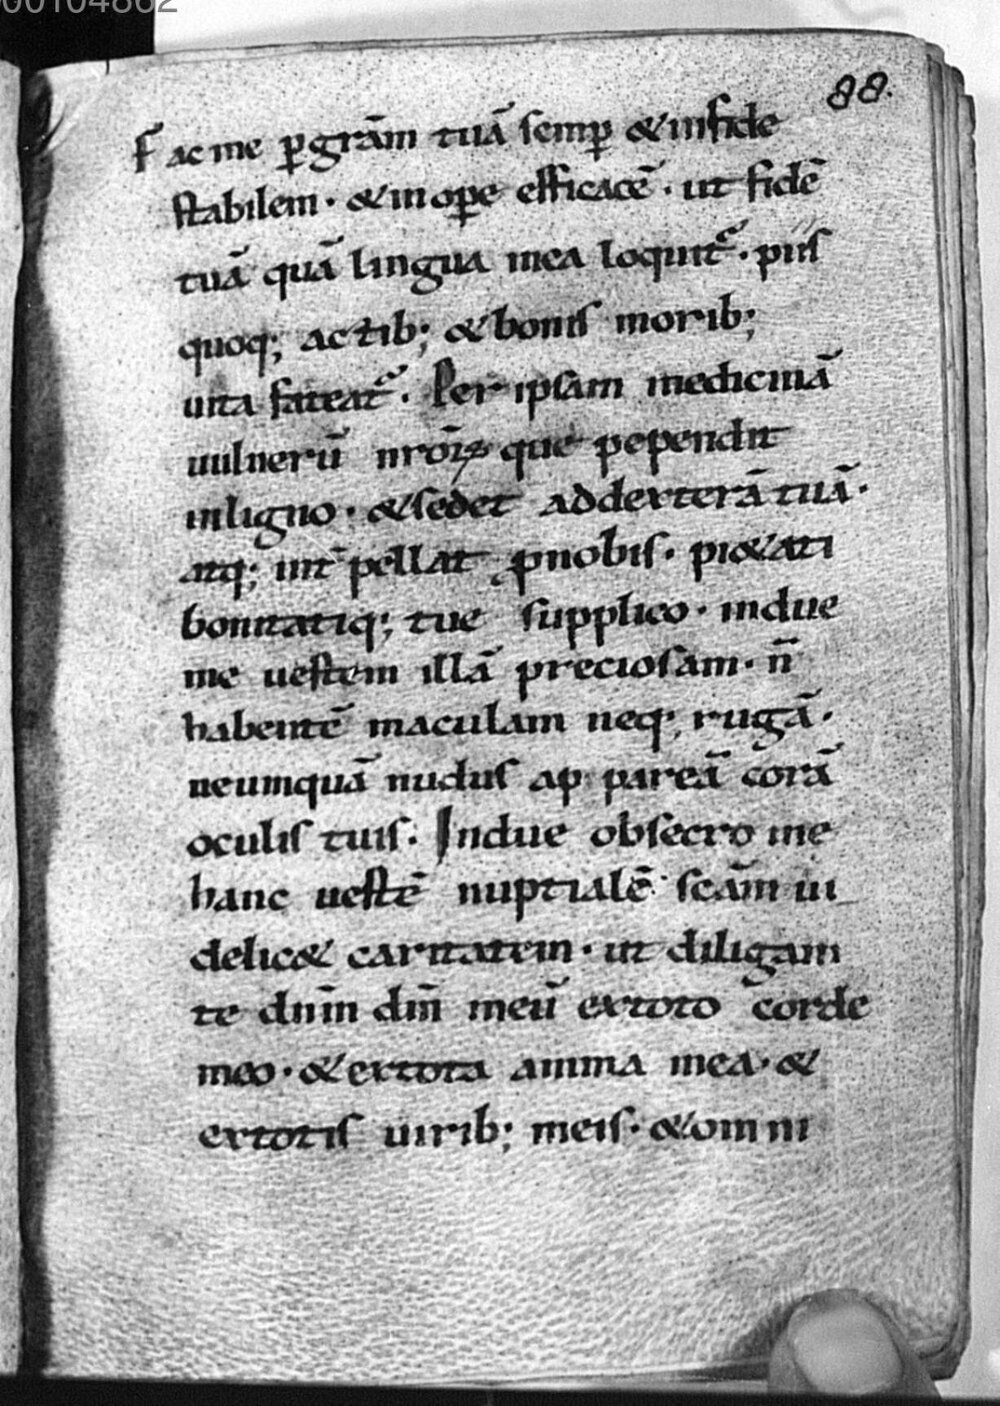 00104862
88.
Fac me ꝑ grām tuā semꝑ & infide
stabilem · & inope efficacē · ut fidē
tuā quā lingua mea loquit᷑ · piis
quoq; actib; & bonis morib;
uita fateat᷑ · Per ipsam medicinā
uulnerū nroꝝ que pependit
inligno · & sedet addexterā tuā ·
atq; int̄pellat ꝓnobis · pi&ati
bonitatiq; tue supplico · indue
me uestem illā preciosam · n̄
habentē maculam neq; rugā ·
neumquā nudus ap pareā corā
oculis tuis · Indue obsecro me
hanc uestē nuptialē scām ui
delic& caritatem · ut diligam
te dn̄m dm̄ meū extoto corde
meo · & extota anima mea · &
extotis uirib; meis · & omni